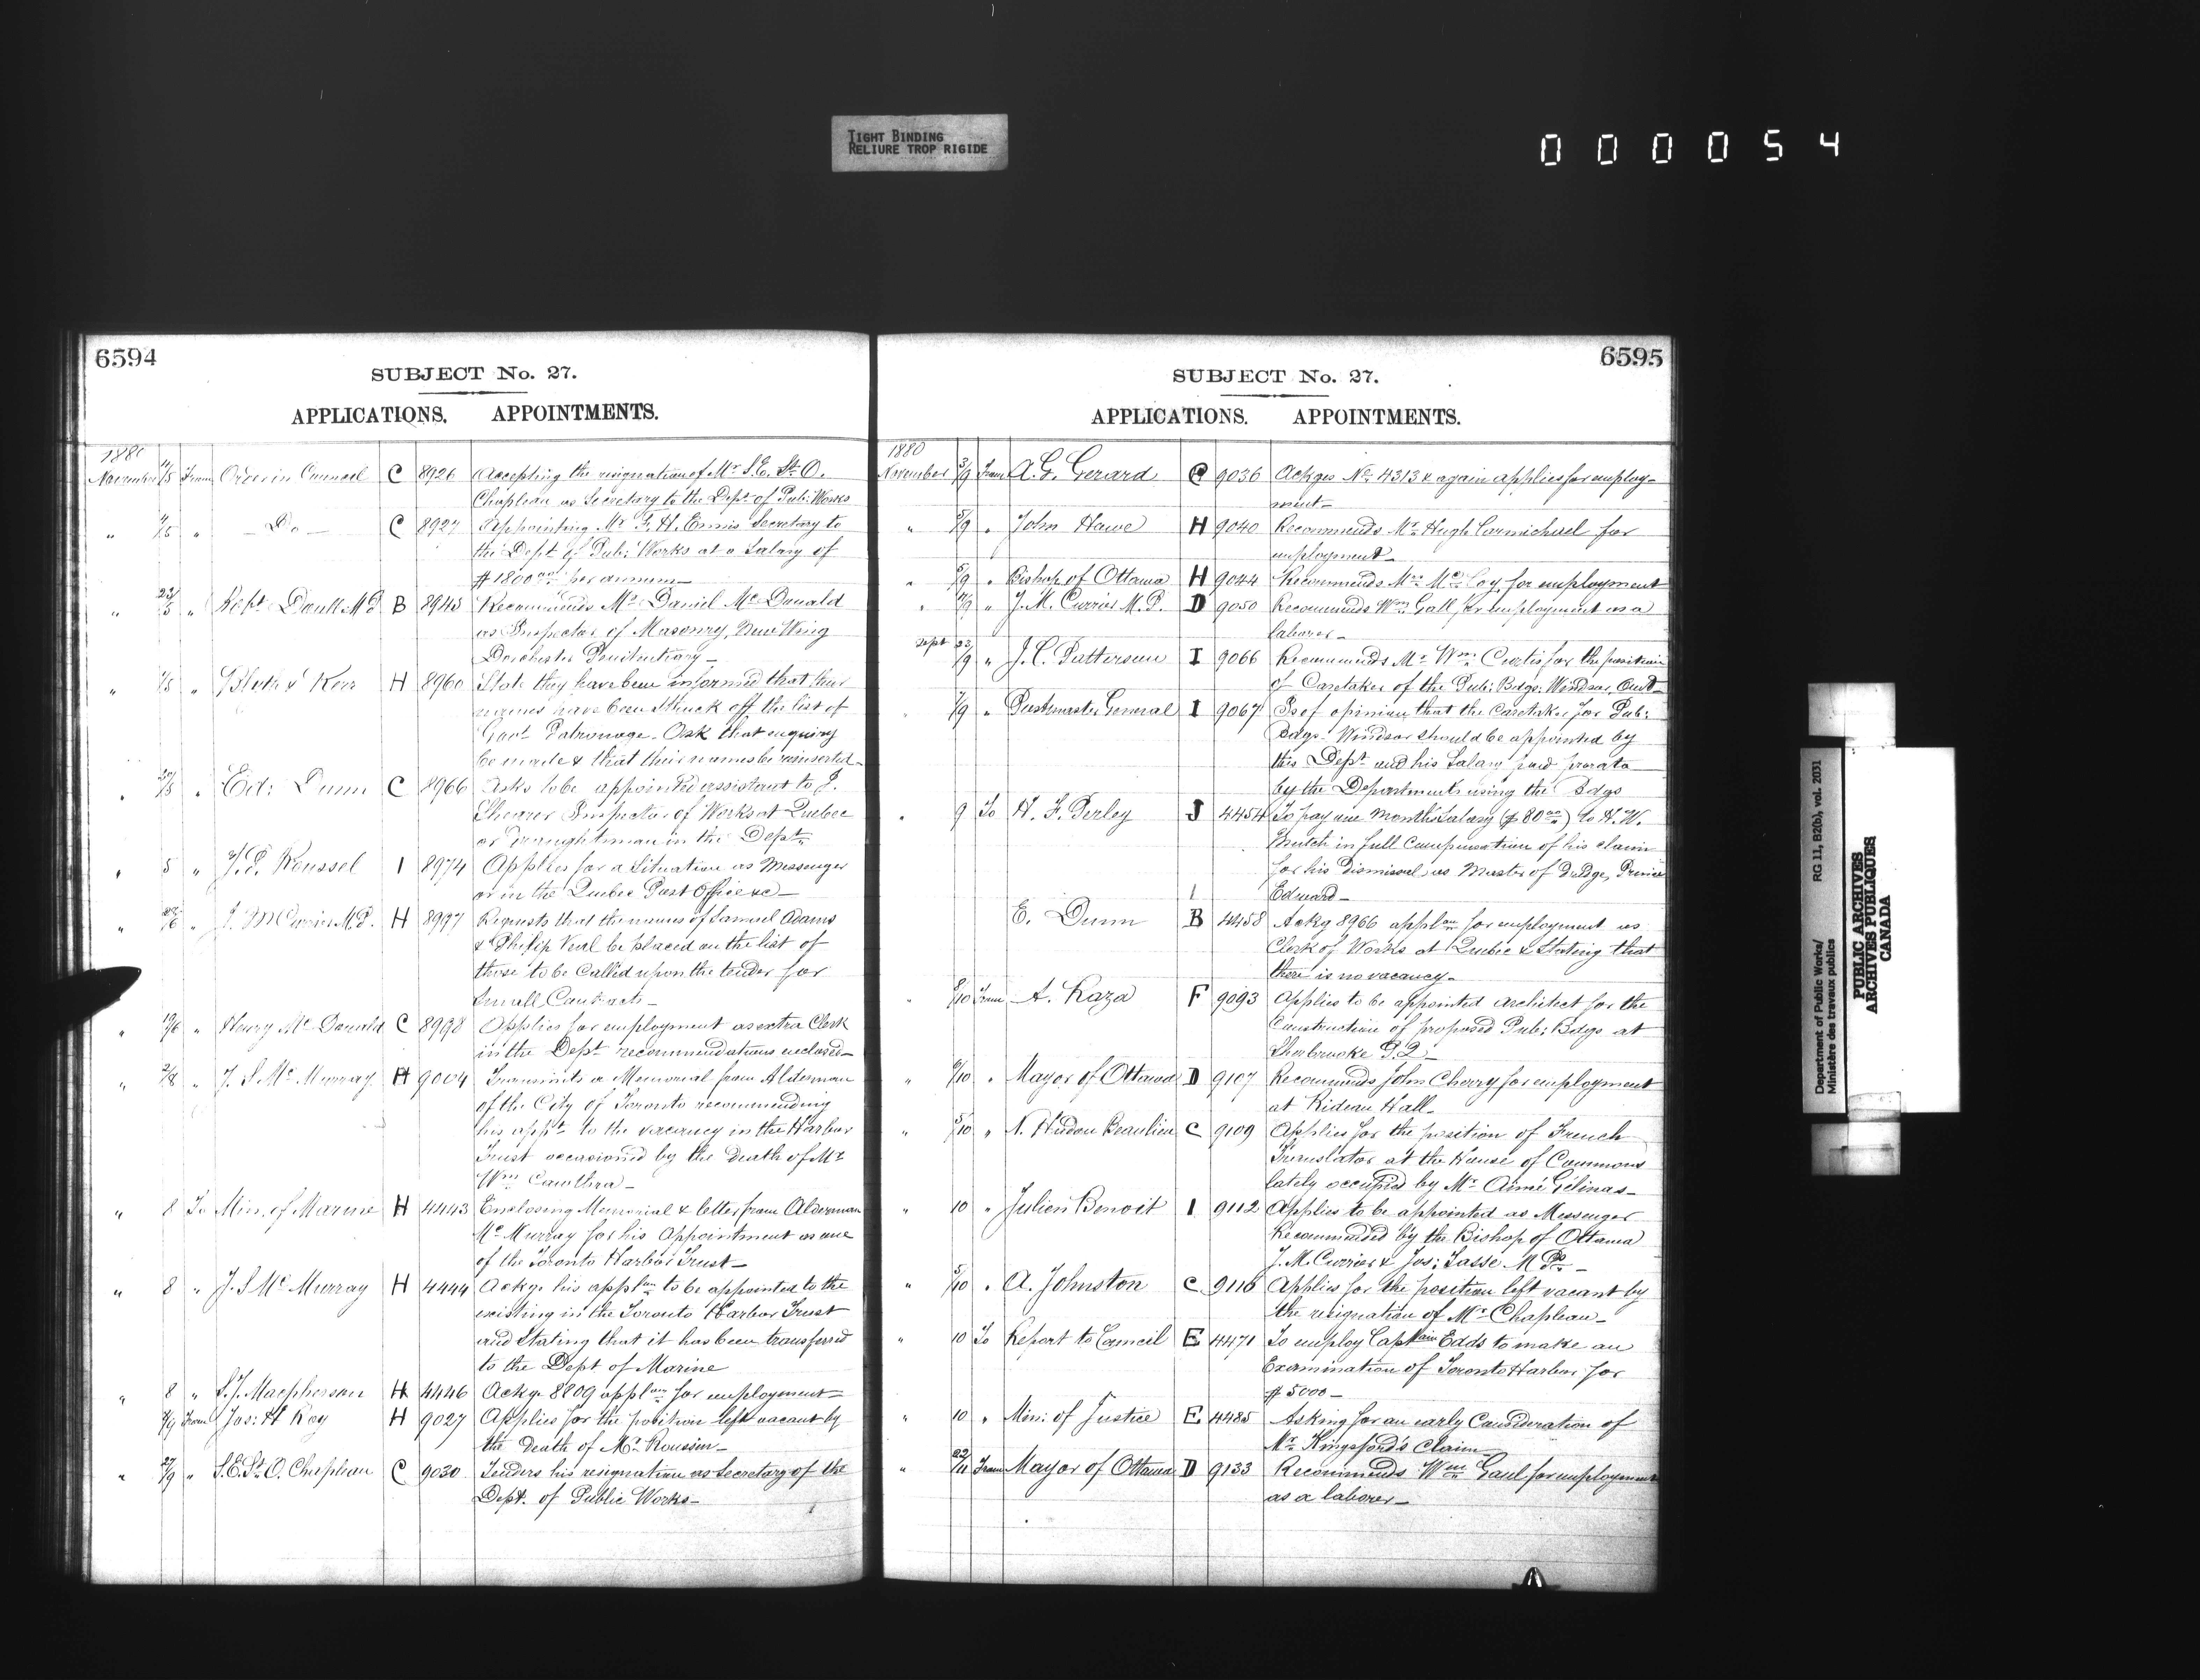 TIGHT BINDING
RELIURE TROP RIGIDE
000054
6594
SUBJECT No. 27.
APPLICATIONS. APPOINTMENTS.
1880
November 4/5 From Order in Council C 8926 Accepting the resignation of Mr. S. E. St. O.
Chapleau as Secretary to the Dept. of Pub: Works
" " — Do — C 8927 Appointing Mr. F. H. Ennis Secretary to
the Dept of Pub: Works at a Salary of
$1800 00 per annum —
" " B 8943 Recommends Mr. Daniel McDonald
as Inspector of Masonry, New Wing
Dorchester Penitentiary —
" " & Kerr H 8960 State they have been informed that their
names have been Struck off the list of
Govt. Patronage. Ask that enquiry
be made & that their names be reinserted —
" " Ed: Dunn C 8966 Asks to be appointed assistant to J.
Shearer Inspector of Works at Quebec
or Draughtsman in the Dept.
" 5 " Roussel I 8974 Applies for a Situation as Messenger
or in the Quebec Post Office &c —
" " J. M. Currier M.P. H 8997 Requests that the names of Samuel Adams
& Philip Veal be placed on the list of
those to be Called upon the tender for
Small Contracts —
" " Henry McDonald C 8998 Applies for employment as extra Clerk
in the Dept. recommendations enclosed —
" " J. S. McMurray H 9004 Transmits a Memorial from Alderman
of the City of Toronto recommending
his appt. to the vacancy in the Harbor
Trust occasioned by the Death of Mr.
Wm. Cawthra —
" 8 To Min. of Marine H 4443 Enclosing Memorial & letter from Alderman
McMurray for his Appointment as one
of the Toronto Harbor Trust —
" 8 " J. S. McMurray H 4444 Ackge his applon. to be appointed to the
existing in the Toronto Harbor Trust
and Stating that it has been transferred
to the Dept of Marine
" 8 " Macpherson H 4446 Ackge 8809 applon. for employment —
From Jos: H Roy H 9027 Applies for the position left vacant by
the Death of Mr. Roussin —
" 27/9 " S. E. St. O. Chapleau C 9030 Tenders his resignation as Secretary of the
Dept. of Public Works —
6595
SUBJECT No. 27.
APPLICATIONS. APPOINTMENTS.
1880
November 3/9 From A. G. Gerard C 9036 Ackges No. 4313 & again applies for employ-
ment —
" 8/9 " John Hawe H 9040 Recommends Mr. Hugh Carmichael for
employment —
" 8/9 " Bishop of Ottawa H 9044 Recommends Mr. McCoy for employment
" " J. M. Currier M.P. D 9050 Recommends Wm. Gall for employment as a
laborer —
Sept 23/9 " J. C. Patterson I 9066 Recommends Mr. Wm. Curtis for the position
of Caretaker of the Pub: Bdgs: Windsor, Ont —
7/9 " Postmaster General I 9067 Is of opinion that the Caretaker for Pub:
Bdgs. Windsor should be appointed by
this Dept. and his Salary paid prorata
by the Departments using the Bdgs
" 9 To H. F. Perley J 4454 To pay one month's Salary ($80 00) to H. W.
Mutch in full Compensation of his claim
for his dismissal as Master of Dredge, Prince
Edward —
E. Dunn B 4458 Ackg 8966 applon. for employment as
Clerk of Works at Quebec & Stating that
there is no vacancy —
" 8/10 From A. Raza F 9093 Applies to be appointed Architect for the
Construction of proposed Pub: Bdgs at
Sherbrooke P.Q —
" 6/10 " Mayor of Ottawa D 9107 Recommends John Cherry for employment
at Rideau Hall —
" 5/10 " N. Hudon Beaulieu C 9109 Applies for the position of French
Translator at the House of Commons
lately occupied by Mr. Aimé Gélinas —
" 10 " Julien Benoit I 9112 Applies to be appointed as Messenger
Recommended by the Bishop of Ottawa
J. M. Currier & Jos: Tasse M Ps —
" 5/10 " A. Johnston C 9116 Applies for the position left vacant by
the resignation of Mr. Chapleau —
" 10 To Report to Council E 4471 To employ Captain Eads to make an
Examination of Toronto Harbor for
$5000 —
" 10 " Min: of Justice E 4485 Asking for an early Consideration of
Mr. Kingsford's Claim —
" 22/11 From Mayor of Ottawa D 9133 Recommends Wm. Gaul for employment
as a laborer —
Department of Public Works/ RG 11, B2(b), vol. 2031
Ministère des travaux publics
PUBLIC ARCHIVES
ARCHIVES PUBLIQUES
CANADA